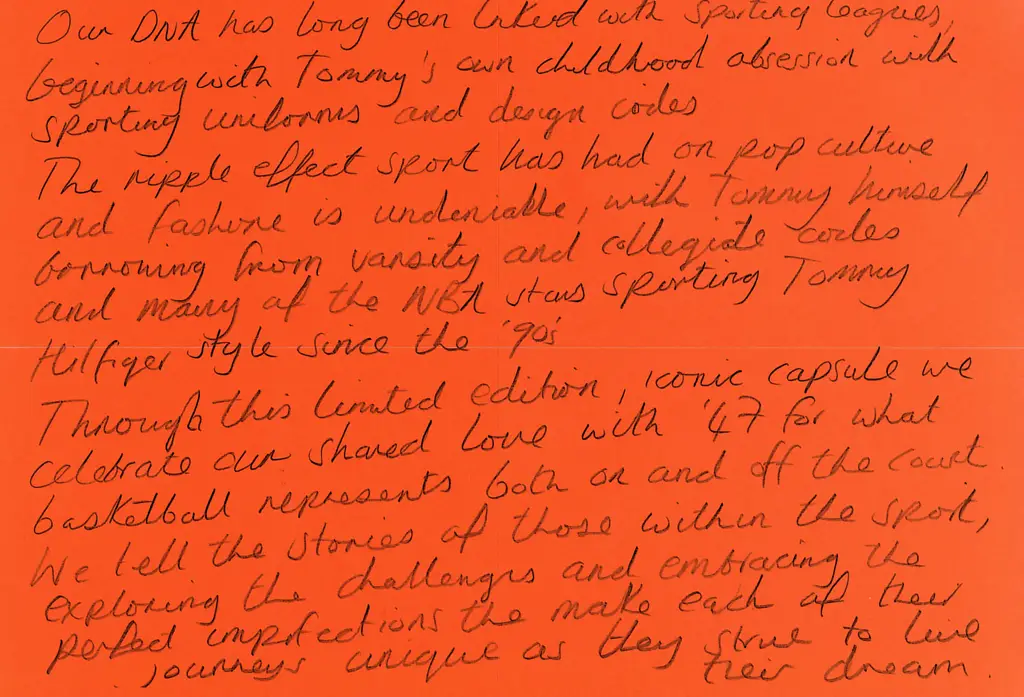 Our DNA has long been linked with sporting leagues,
beginning with Tommy's own childhood obsession with
sporting uniforms and design codes
The ripple effect sport has had on pop culture
and fashone is undeniable, with Tommy himself
borrowing from varsity and collegiate codes
and many of the NBA stars sporting Tommy
Hilfiger style since the '90's
Through this limited edition, iconic capsule we
celebrate our shared love with '47 for what
basketball represents both on and off the court.
We tell the stories of those within the sport,
exploring the challenges and embracing the
perfect imperfections the make each of their
journeys unique as they strive to live
their dream.